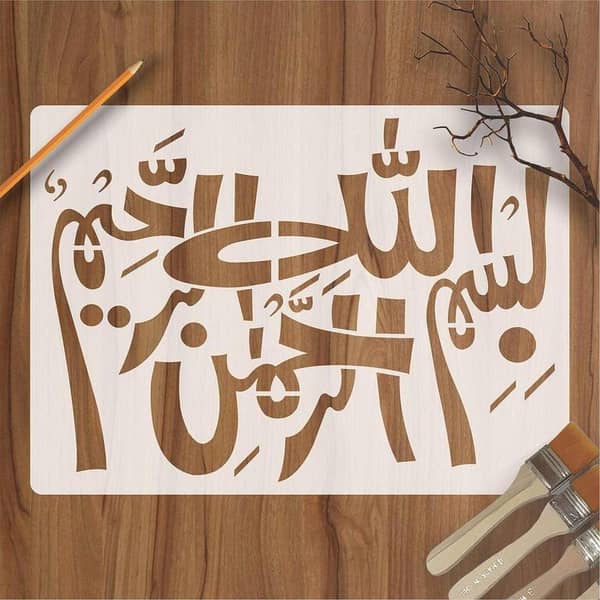 بِسمِ اللّٰهِ الرَّحمٰنِ الرَّحِيمِ